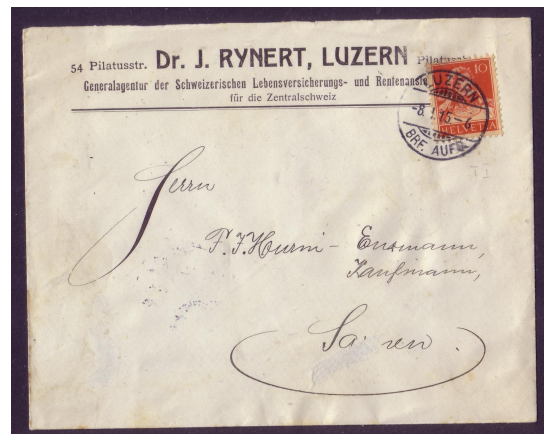 54 Pilatusstr. Dr. J. RYNERT, LUZERN Pilatusstr.
Generalagentur der Schweizerischen Lebensversicherungs- und Rentenanst
für die Zentralschweiz
10
HELVETIA
LUZERN
-8. I. 15-
BRF. AUFG.
Herrn
F. J. Hurni-
Kaufmann,